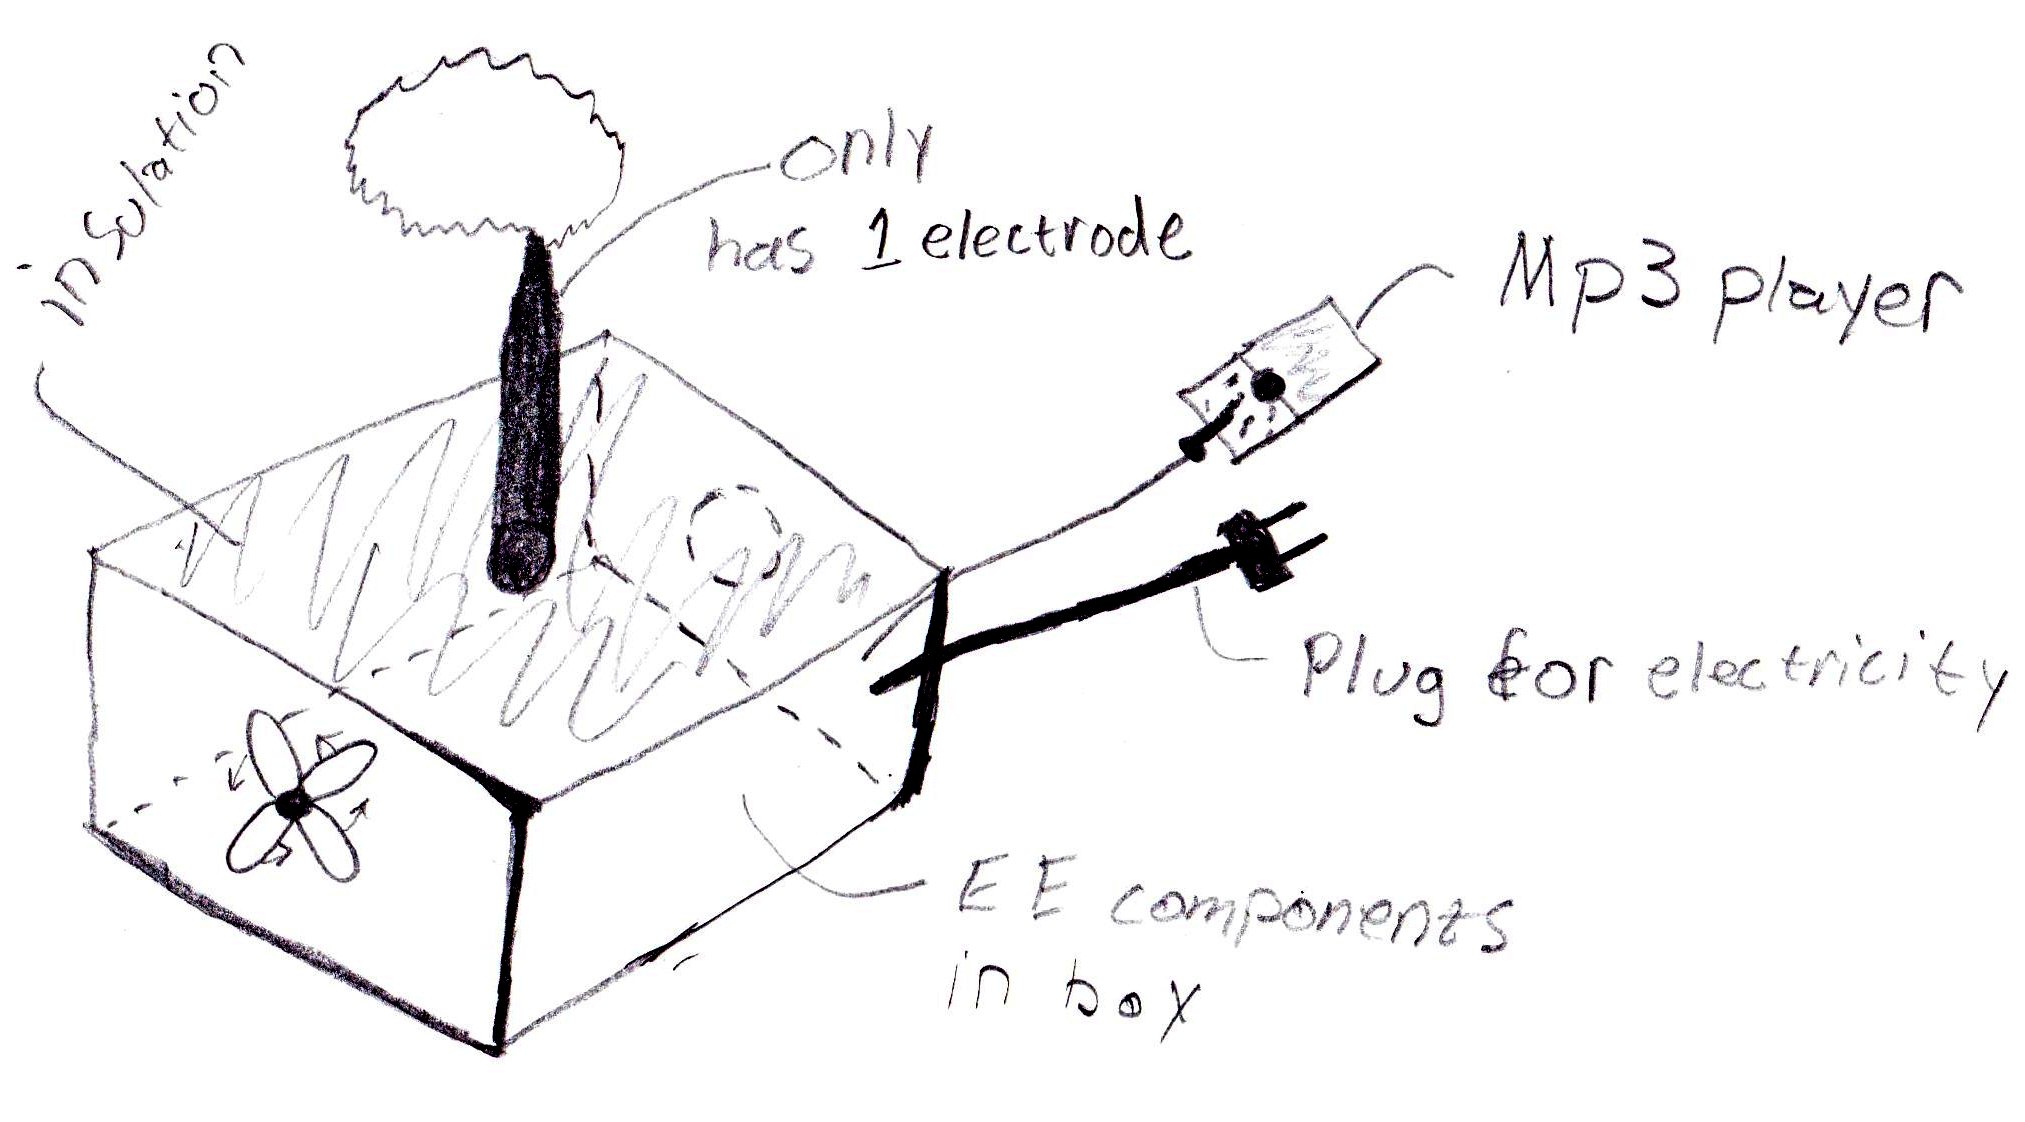 insulation
only
has 1 electrode
Mp3 player
Plug for electricity
EE components
in box